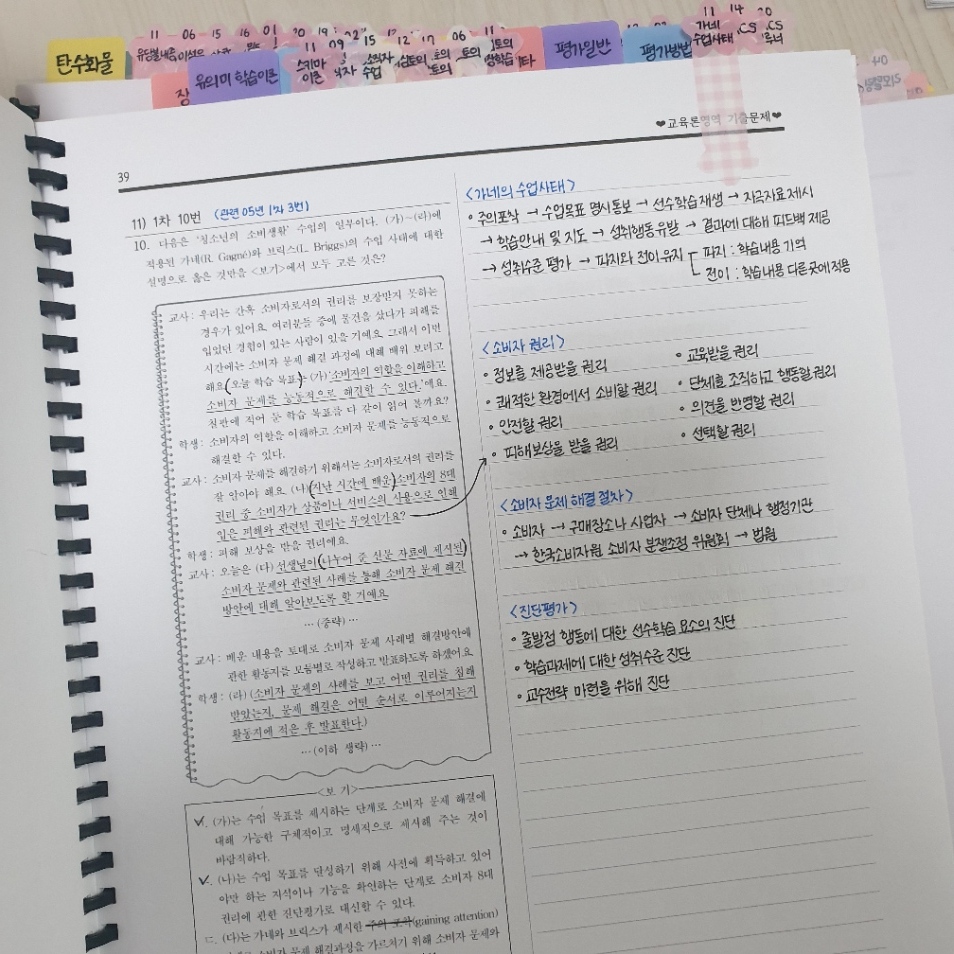 탄수화물
유의미 학습이론
평가일반
평가방법
가네
수업사태
♥교육론영역 기출문제♥
39
11) 1차 10번 (관련 05년 1차 3번)
10. 다음은 '청소년의 소비생활' 수업의 일부이다. (가)~(라)에
적용된 가네(R. Gagné)와 브릭스(L. Briggs)의 수업 사태에 대한
설명으로 옳은 것만을 <보기>에서 모두 고른 것은?
교사 : 우리는 간혹 소비자로서의 권리를 보장받지 못하는
경우가 있어요. 여러분들 중에 물건을 샀다가 피해를
입었던 경험이 있는 사람이 있을 거예요. 그래서 이번
시간에는 소비자 문제 해결 과정에 대해 배워 보려고
해요. 오늘 학습 목표는 (가) '소비자의 역할을 이해하고
소비자 문제를 능동적으로 해결할 수 있다.'예요.
칠판에 적어 둔 학습 목표를 다 같이 읽어 볼까요?
학생 : 소비자의 역할을 이해하고 소비자 문제를 능동적으로
해결할 수 있다.
교사 : 소비자 문제를 해결하기 위해서는 소비자로서의 권리를
잘 알아야 해요. (나) 지난 시간에 배운 소비자의 8대
권리 중 소비자가 상품이나 서비스의 사용으로 인해
입은 피해와 관련된 권리는 무엇인가요?
학생 : 피해 보상을 받을 권리예요.
교사 : 오늘은 (다) 선생님이 나누어 준 신문 자료에 제시된
소비자 문제와 관련된 사례를 통해 소비자 문제 해결
방안에 대해 알아보도록 할 거예요.
…(중략)…
교사 : 배운 내용을 토대로 소비자 문제 사례별 해결방안에
관한 활동지를 모둠별로 작성하고 발표하도록 하겠어요.
학생 : (라) (소비자 문제의 사례를 보고 어떤 권리를 침해
받았는지, 문제 해결은 어떤 순서로 이루어지는지
활동지에 적은 후 발표한다.)
…(이하 생략)…
<보 기>
ㄱ. (가)는 수업 목표를 제시하는 단계로 소비자 문제 해결에
대해 가능한 구체적이고 명세적으로 제시해 주는 것이
바람직하다.
ㄴ. (나)는 수업 목표를 달성하기 위해 사전에 획득하고 있어
야만 하는 지식이나 기능을 확인하는 단계로 소비자 8대
권리에 관한 진단평가로 대신할 수 있다.
ㄷ. (다)는 가네와 브릭스가 제시한 주의 포착(gaining attention)
소비자 문제 해결과정을 가르치기 위해 소비자 문제와
<가네의 수업사태>
• 주의포착 → 수업목표 명시통보 → 선수학습 재생 → 자극자료 제시
→ 학습안내 및 지도 → 성취행동 유발 → 결과에 대해 피드백 제공
→ 성취수준 평가 → 파지와 전이 유지 [ 파지 : 학습내용 기억
전이 : 학습내용 다른곳에 적용
<소비자 권리>
• 정보를 제공받을 권리
• 쾌적한 환경에서 소비할 권리
• 안전할 권리
• 피해보상을 받을 권리
• 교육받을 권리
• 단체를 조직하고 행동할 권리
• 의견을 반영할 권리
• 선택할 권리
<소비자 문제 해결 절차>
• 소비자 → 구매장소나 사업자 → 소비자 단체나 행정기관
→ 한국소비자원 소비자 분쟁조정 위원회 → 법원
<진단평가>
• 출발점 행동에 대한 선수학습 요소의 진단
• 학습과제에 대한 성취수준 진단
• 교수전략 마련을 위해 진단